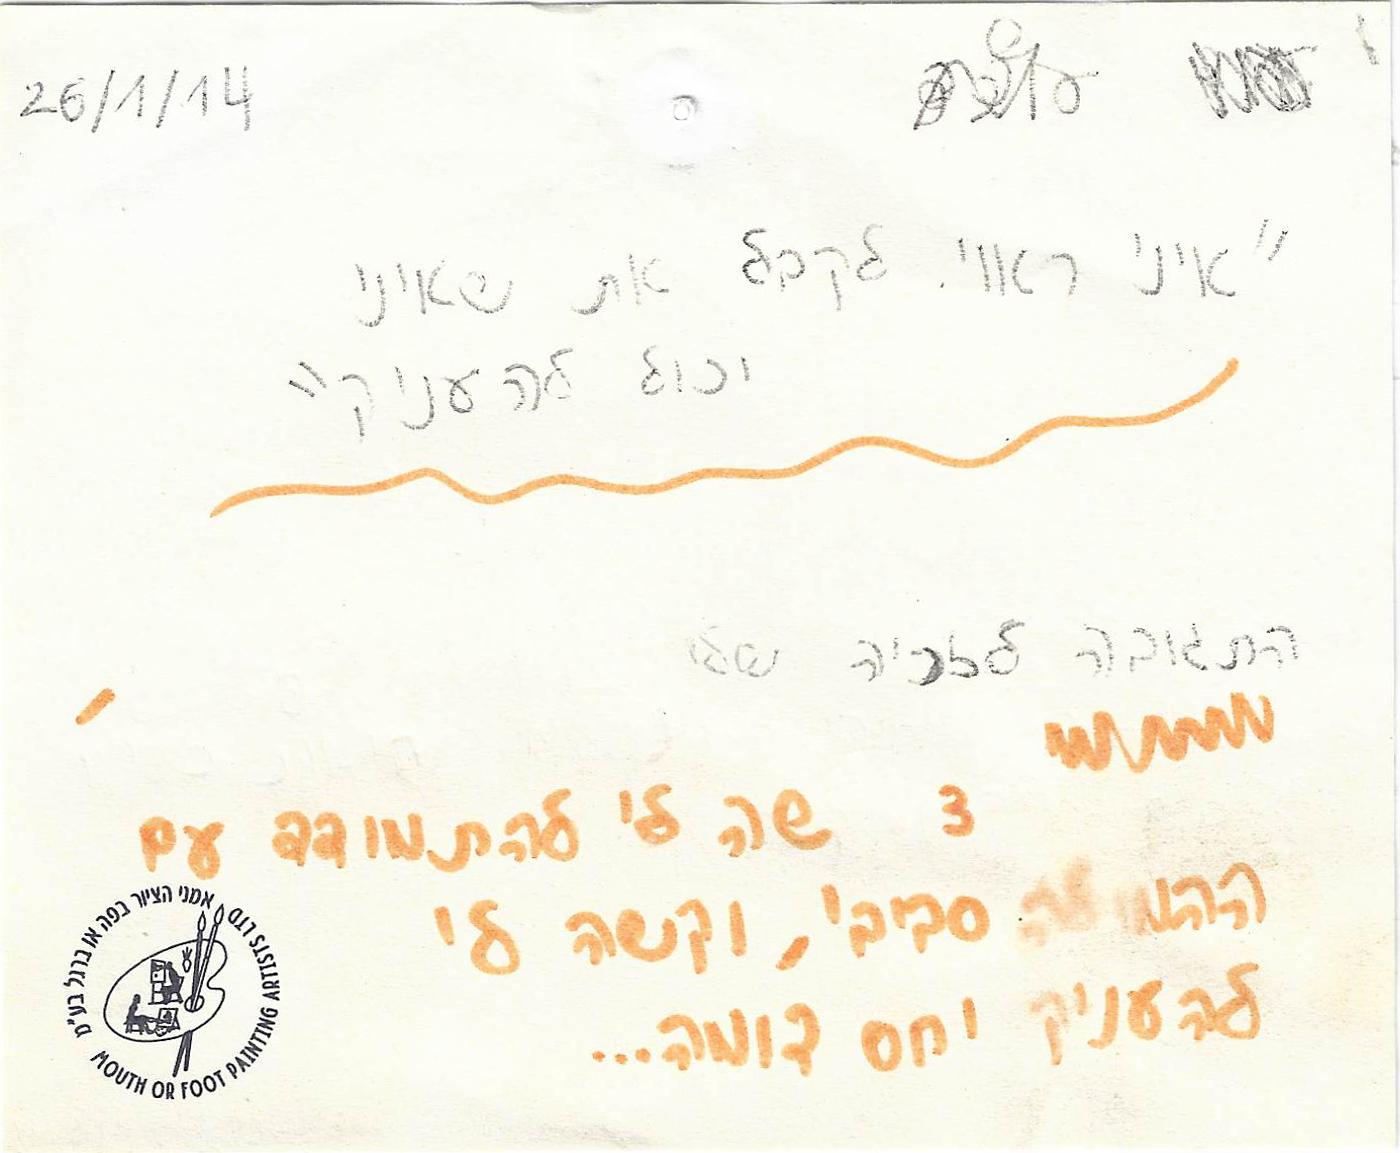 26/1/14
"איני ראוי לקבל את שאיני
יכול להעניק"
התגובה לזכיה שלי
שה לי להתמודד עם
סביבי, וקשה לי
להעניק יחס דומה...
אמני הציור בפה או ברגל בע"מ
MOUTH OR FOOT PAINTING ARTISTS LTD